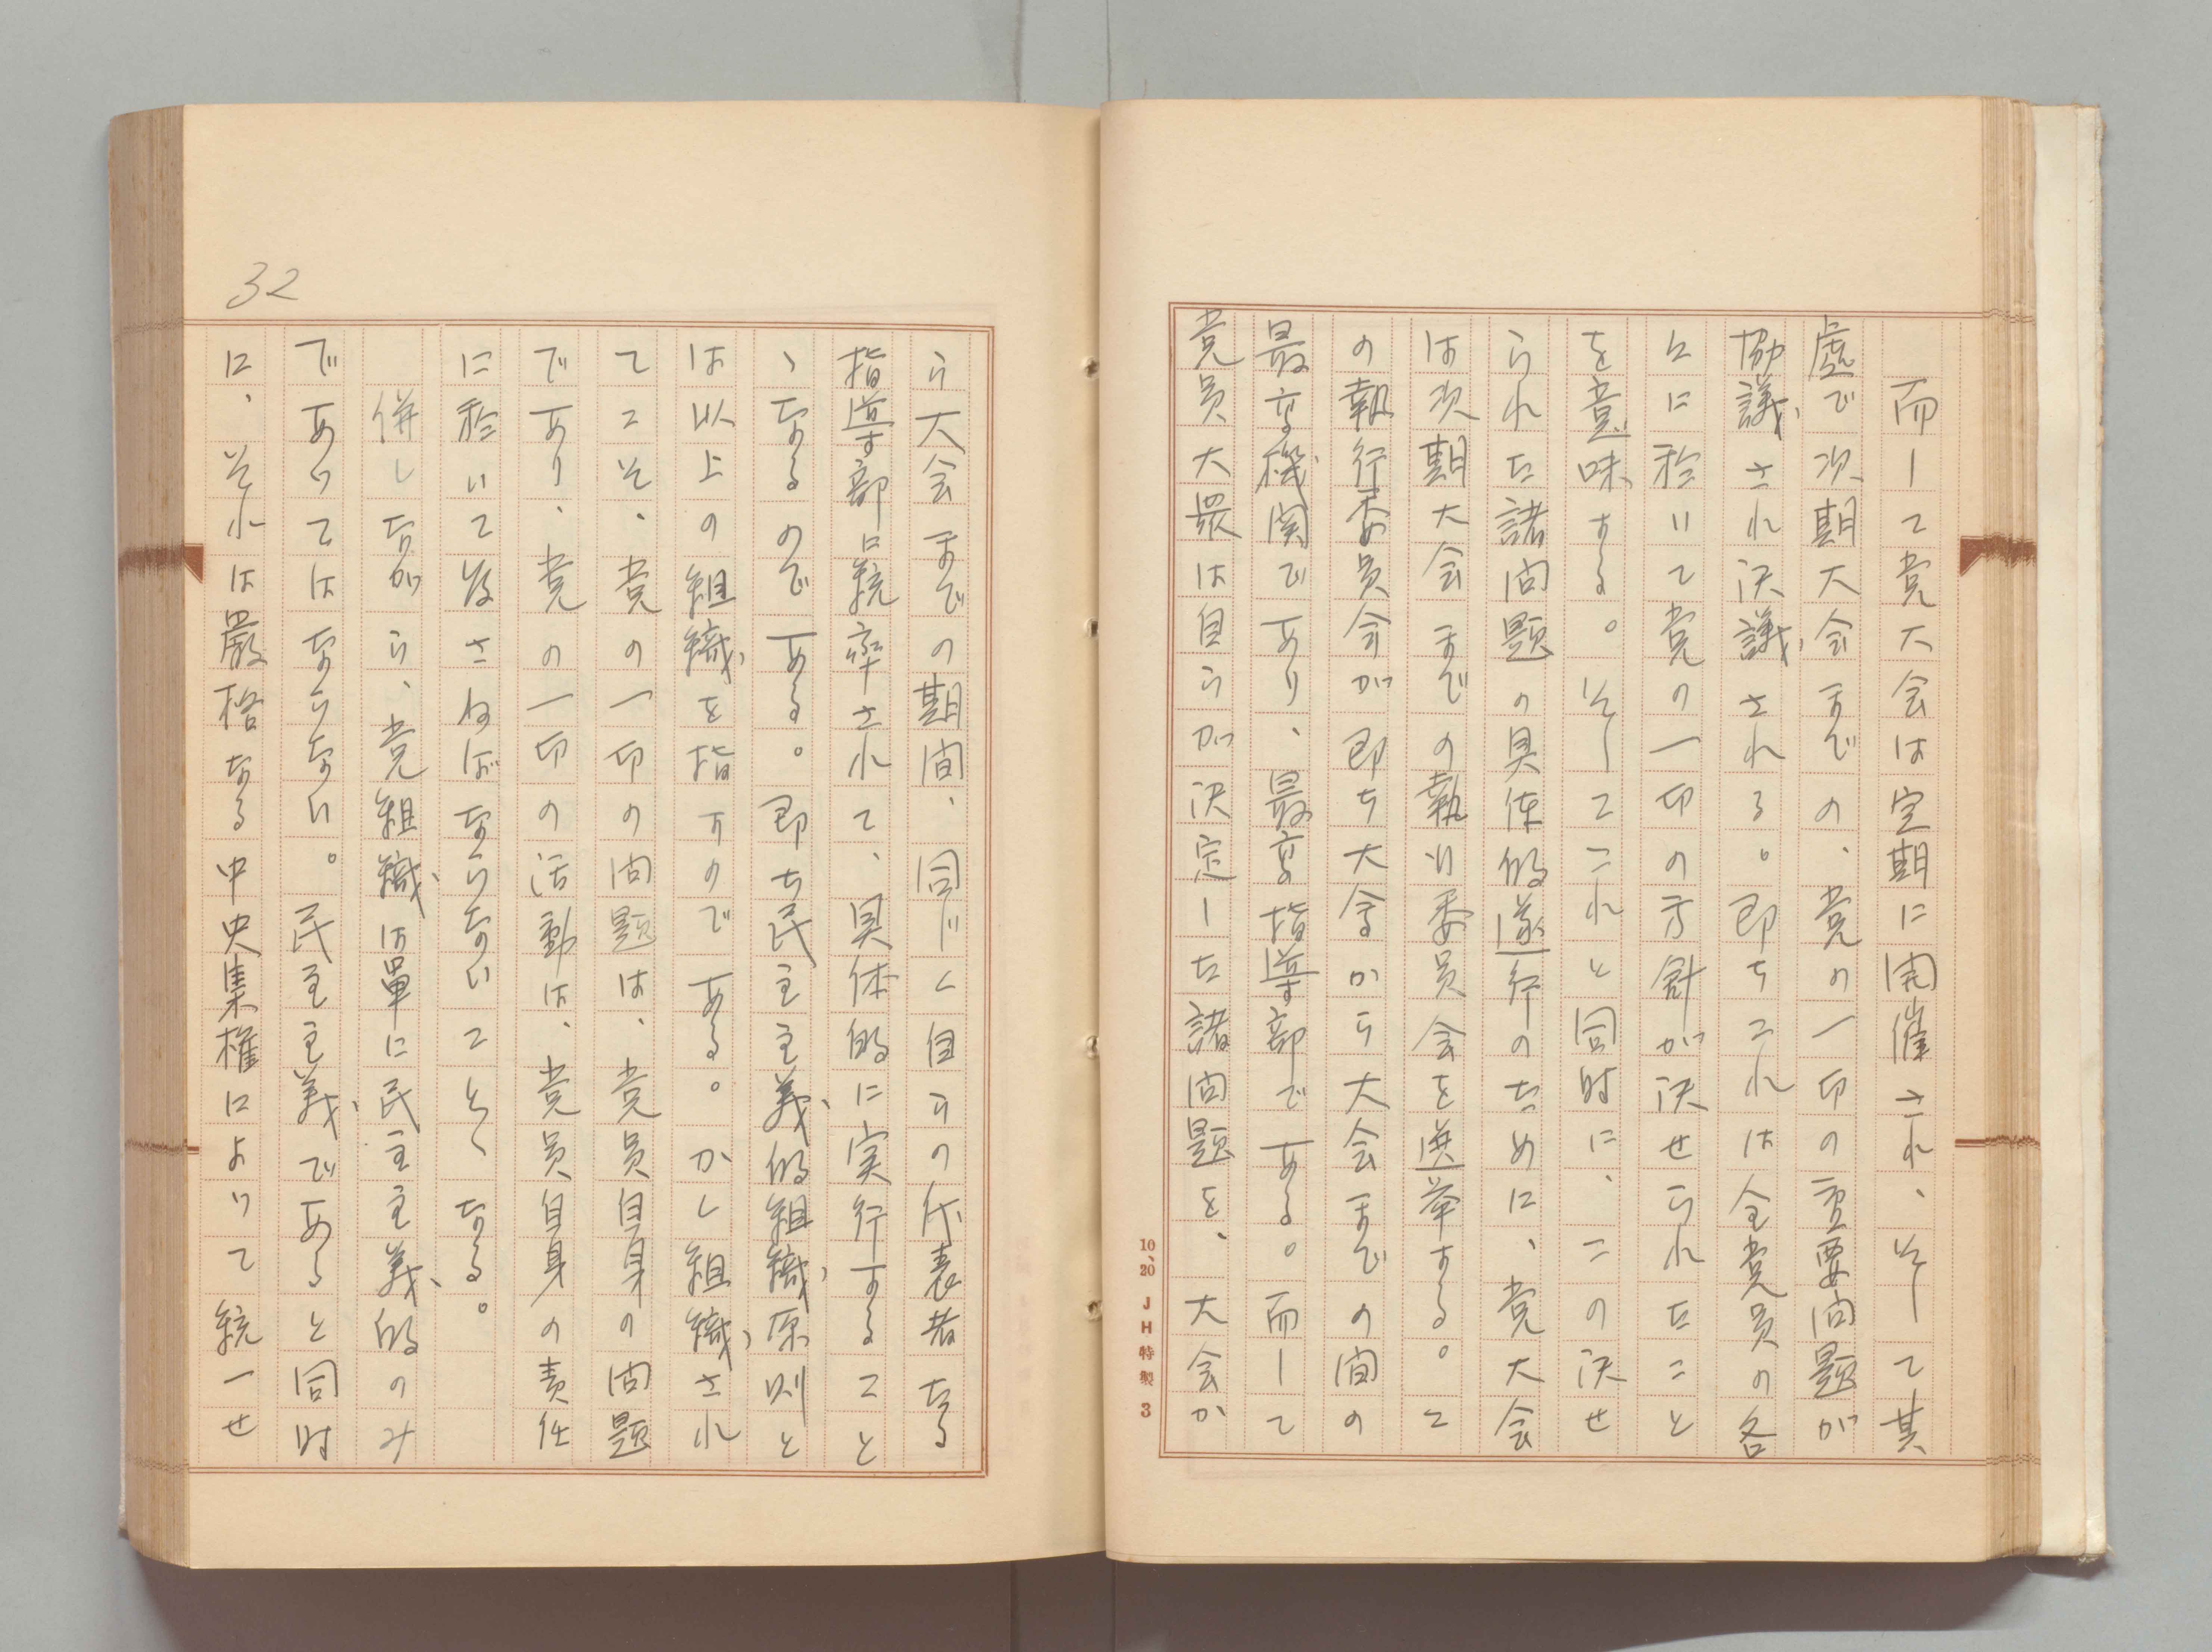 而して党大会は定期に開催され、そして其
処で次期大会までの、党の一切の重要問題が
協議され決議される。即ちこれは全党員の各
々に於いて党の一切の方針が決せられたこと
を意味する。そしてこれと同時に、この決せ
られた諸問題の具体的遂行のために、党大会
は次期大会までの執行委員会を選挙する。こ
の執行委員会が即ち大会から大会までの間の
最高機関であり、最高指導部である。而して
党員大衆は自らが決定した諸問題を、大会か
10、20 JH特製 3
ら大会までの期間、同じく自らの代表者たる
指導部に統率されて、具体的に実行すること
ゝなるのである。即ち民主主義的組織原則と
は以上の組織を指すのである。かし組織され
てこそ、党の一切の問題は、党員自身の問題
であり、党の一切の活動は、党員自身の責任
に於いて考さねばならないことゝなる。
併しながら、党組織は単に民主主義的のみ
であってはならない。民主主義であると同時
に、それは厳格なる中央集権によりて統一せ
32